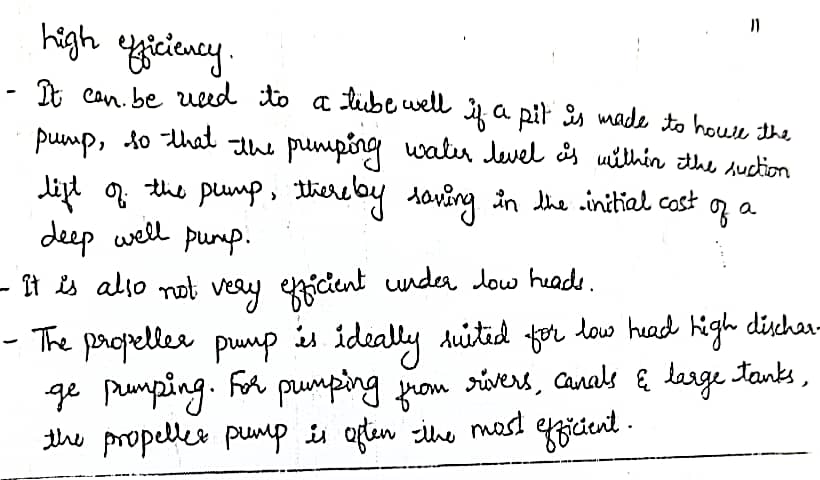 11
high efficiency.
- It can be used to a tube well if a pit is made to house the
pump, so that the pumping water level is within the suction
lift of the pump, thereby saving in the initial cost of a
deep well pump.
- It is also not very efficient under low heads.
- The propeller pump is ideally suited for low head high dischar-
ge pumping. For pumping from rivers, canals & large tanks,
the propeller pump is often the most efficient.